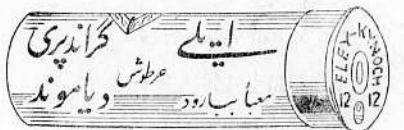 ايلي گراندپري
خرطوش
معبأ ببارود دياموند
ELEY-KYNOCH
12 12